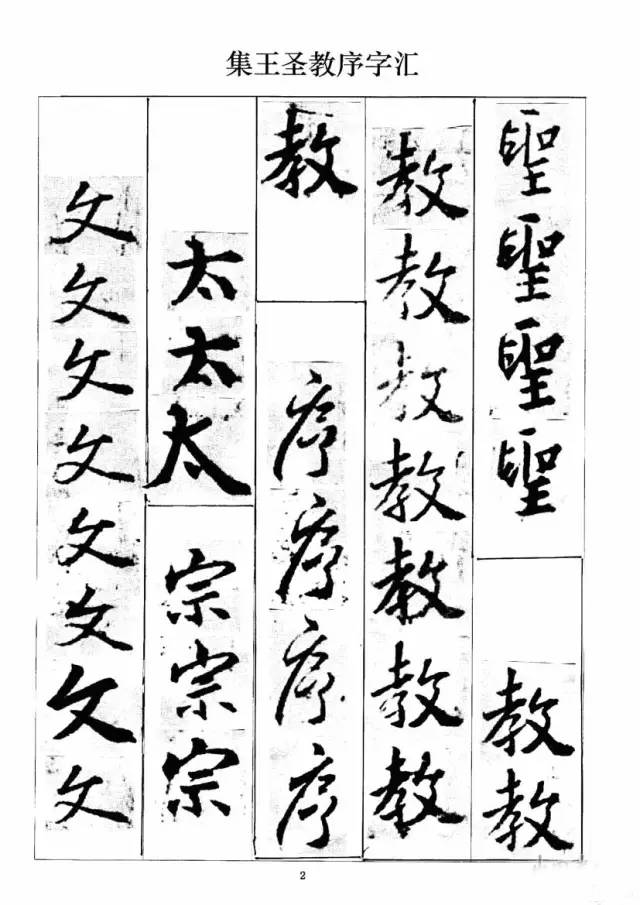 集王圣教序字汇
聖聖聖聖教教
教教教教教教教
教序序序序
太太太宗宗宗
文文文文文文文文
2